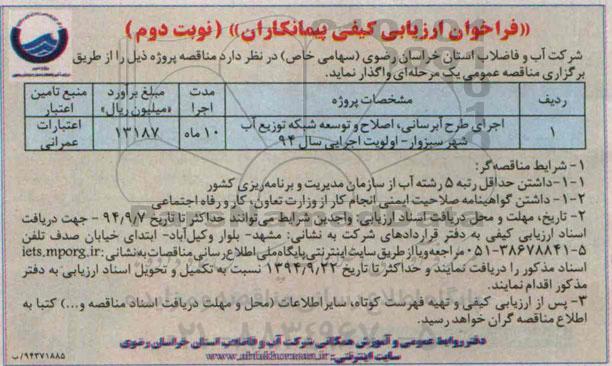 «فراخوان ارزیابی کیفی پیمانکاران» (نوبت دوم)
شرکت آب و فاضلاب استان خراسان رضوی (سهامی خاص) در نظر دارد مناقصه پروژه ذیل را از طریق
برگزاری مناقصه عمومی یک مرحله‌ای واگذار نماید.
ردیف مشخصات پروژه مدت اجرا مبلغ برآورد «میلیون ریال» منبع تامین اعتبار
۱ اجرای طرح آبرسانی، اصلاح و توسعه شبکه توزیع آب شهر سبزوار- اولویت اجرایی سال ۹۴ ۱۰ ماه ۱۳۱۸۷ اعتبارات عمرانی
۱- شرایط مناقصه‌گر:
۱-۱- داشتن حداقل رتبه ۵ رشته آب از سازمان مدیریت و برنامه‌ریزی کشور
۱-۲- داشتن گواهینامه صلاحیت ایمنی انجام کار از وزارت تعاون، کار و رفاه اجتماعی
۲- تاریخ، مهلت و محل دریافت اسناد ارزیابی واجدین شرایط می‌توانند حداکثر تا تاریخ ۹۴/۹/۷ - جهت دریافت
اسناد ارزیابی کیفی به دفتر قراردادهای شرکت به نشانی: مشهد- بلوار وکیل‌آباد- ابتدای خیابان صدف تلفن
۵-۳۸۶۷۸۸۴۱-۰۵۱ مراجعه و یا از طریق سایت اینترنتی پایگاه ملی اطلاع رسانی مناقصات به نشانی: iets.mporg.ir
اسناد مذکور را دریافت نمایند و حداکثر تا تاریخ ۱۳۹۴/۹/۲۲ نسبت به تکمیل و تحویل اسناد ارزیابی به دفتر
مذکور اقدام نمایند.
۳- پس از ارزیابی کیفی و تهیه فهرست کوتاه، سایر اطلاعات (محل و مهلت دریافت اسناد مناقصه و...) کتبا به
اطلاع مناقصه گران خواهد رسید.
دفتر روابط عمومی و آموزش همگانی شرکت آب و فاضلاب استان خراسان رضوی
سایت اینترنتی:
۹۴۳۷۱۸۸۵/ب